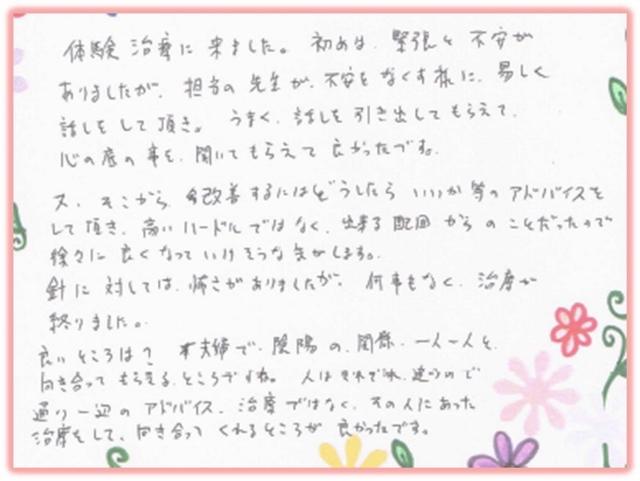 体験治療に来ました。初めは、緊張と不安が
ありましたが、担当の先生が、不安をなくす様に、易しく
話しをして頂き。うまく、話しを引き出してもらえて、
心の底の事を、聞いてもらえて良かったです。
又、そこから、改善するにはどうしたらいいか等のアドバイスを
して頂き、高いハードルではなく、出来る範囲からのことだったので
徐々に良くなっていけそうな気がします。
針に対しては、怖さがありましたが、何事もなく、治療が
終りました。
良いところは? 夫婦で、陰陽の、関係、一人一人を、
向き合ってもらえる、ところですね。人はそれぞれ、違うので
通り一辺のアドバイス、治療ではなく、その人にあった
治療をして、向き合ってくれるところが良かったです。